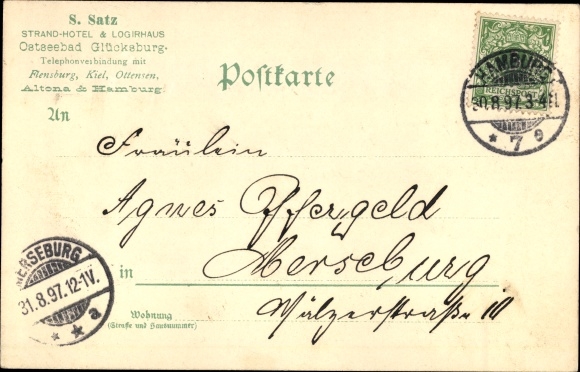 S. Satz
STRAND-HOTEL & LOGIRHAUS
Ostseebad Glücksburg.
Telephonverbindung mit
Flensburg, Kiel, Ottensen,
Altona & Hamburg.
Postkarte
REICHSPOST
HAMBURG
30.8.97.3-4N.
* 7 e
An
Fräulein
Agnes Pfferngeld
in Merseburg
Wälzerstraße 10
Wohnung
(Straße und Hausnummer)
MERSEBURG
31.8.97.12-1V.
* * a